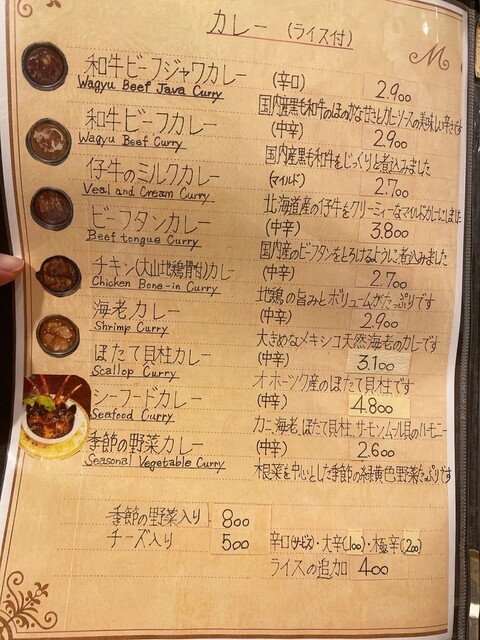 カレー (ライス付)
M
和牛ビーフジャワカレー (辛口) 2.900
Wagyu Beef Java Curry
国内産黒毛和牛のほのかな甘さとカレーソースの美味しい辛さです
和牛ビーフカレー (中辛) 2.900
Wagyu Beef Curry
国内産黒毛和牛をじっくりと煮込みました
仔牛のミルクカレー (マイルド) 2.700
Veal and Cream Curry
北海道産の仔牛をクリーミィーなマイルドカレーにしました
ビーフタンカレー (中辛) 3.800
Beef tongue Curry
国内産のビーフタンをとろけるように煮込みました
チキン(大山地鶏骨付)カレー (中辛) 2.700
Chicken Bone-in Curry
地鶏の旨みとボリュームがたっぷりです
海老カレー (中辛) 2.900
Shrimp Curry
大きめなメキシコ天然海老のカレーです
ほたて貝柱カレー (中辛) 3.100
Scallop Curry
オホーツク産のほたて貝柱です
シーフードカレー (中辛) 4.800
Seafood Curry
カニ、海老、ほたて貝柱、サーモン、ムール貝のハーモニー
季節の野菜カレー (中辛) 2.600
Seasonal Vegetable Curry
根菜を中心とした季節の緑黄色野菜たっぷりです
季節の野菜入り 800
チーズ入り 500 辛口(サービス)・大辛(100)・極辛(200)
ライスの追加 400